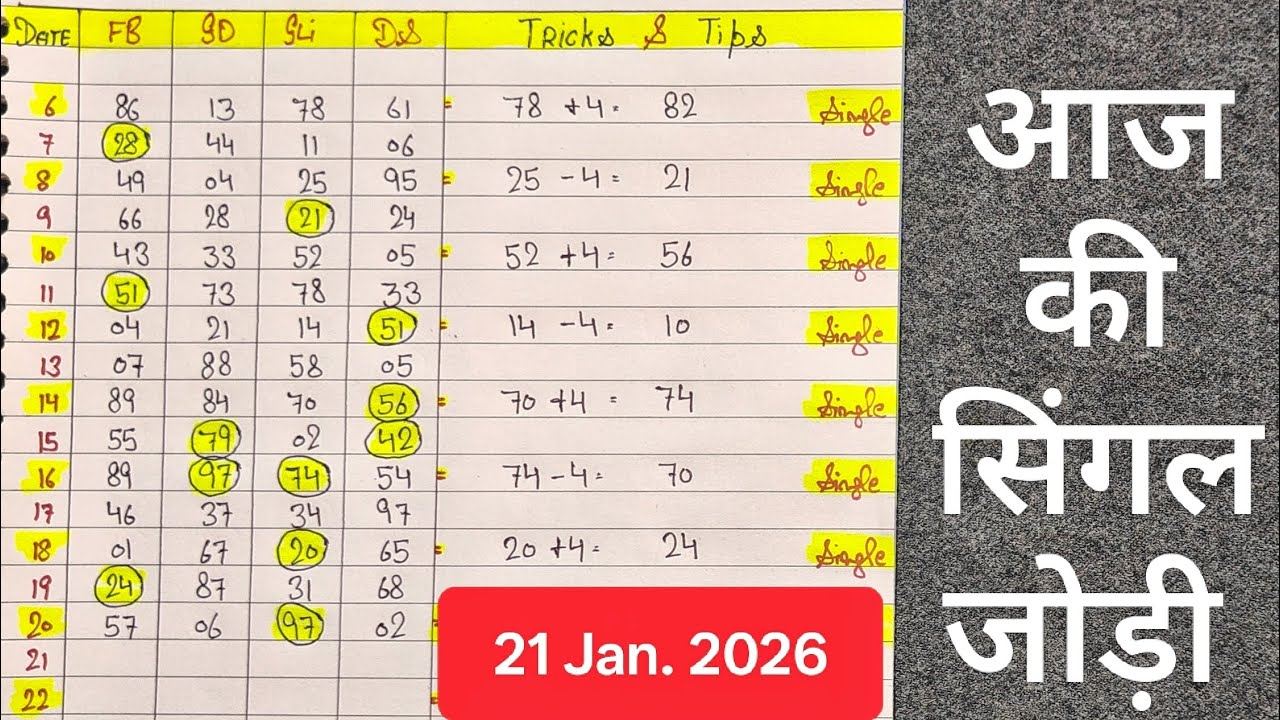 DATE FB GD Gli DS Tricks & Tips
6 86 13 78 61 = 78 +4= 82 Single
7 28 44 11 06
8 49 04 25 95 = 25 -4= 21 Single
9 66 28 21 24
10 43 33 52 05 = 52 +4= 56 Single
11 51 73 78 33
12 04 21 14 51 = 14 -4= 10 Single
13 07 88 58 05
14 89 84 70 56 = 70 +4 = 74 Single
15 55 79 02 42
16 89 97 74 54 = 74 -4= 70 Single
17 46 37 34 97
18 01 67 20 65 = 20 +4= 24 Single
19 24 87 31 68
20 57 06 97 02
21
22
21 Jan. 2026
आज
की
सिंगल
जोड़ी